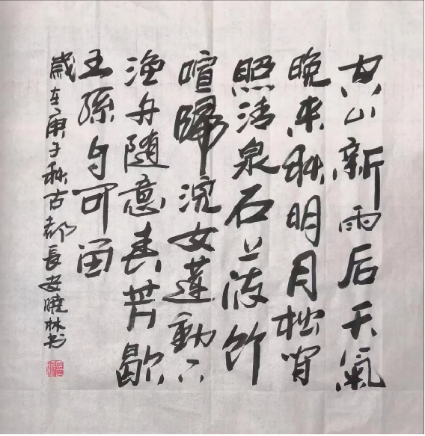 空山新雨后天氣
晚来秋明月松间
照清泉石上流竹
喧歸浣女蓮動下
渔舟隨意春芳歇
王孫自可留
歲在庚子秋古都長安曉林书